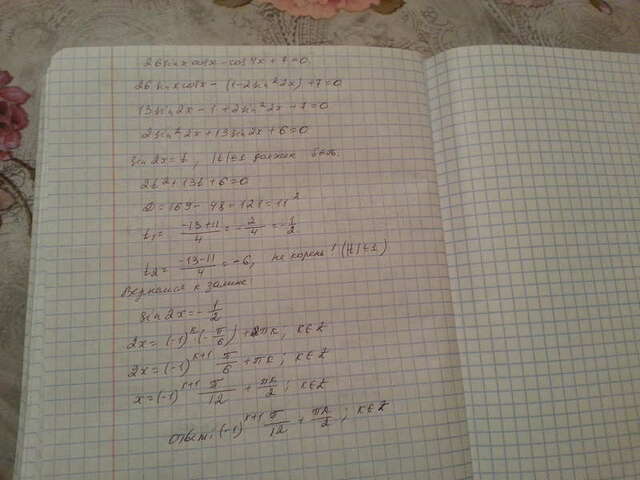 26sinxcosx-cos4x+7=0
26sinxcosx-(1-2sin²2x)+7=0
13sin2x-1+2sin²2x+7=0
2sin²2x+13sin2x+6=0
sin2x=t, |t|≤1 должно быть.
2t²+13t+6=0
D=169-48=121=11²
t₁= (-13+11)/4 = -2/4 = -1/2
t₂= (-13-11)/4 = -6, не корень! (|t|≤1)
Вернемся к замене
sin2x=-1/2
2x=(-1)^k(-π/6)+πk; k∈Z
2x=(-1)^(k+1) π/6+πk; k∈Z
x=(-1)^(k+1) π/12+πk/2; k∈Z
Ответ: (-1)^(k+1) π/12+πk/2; k∈Z